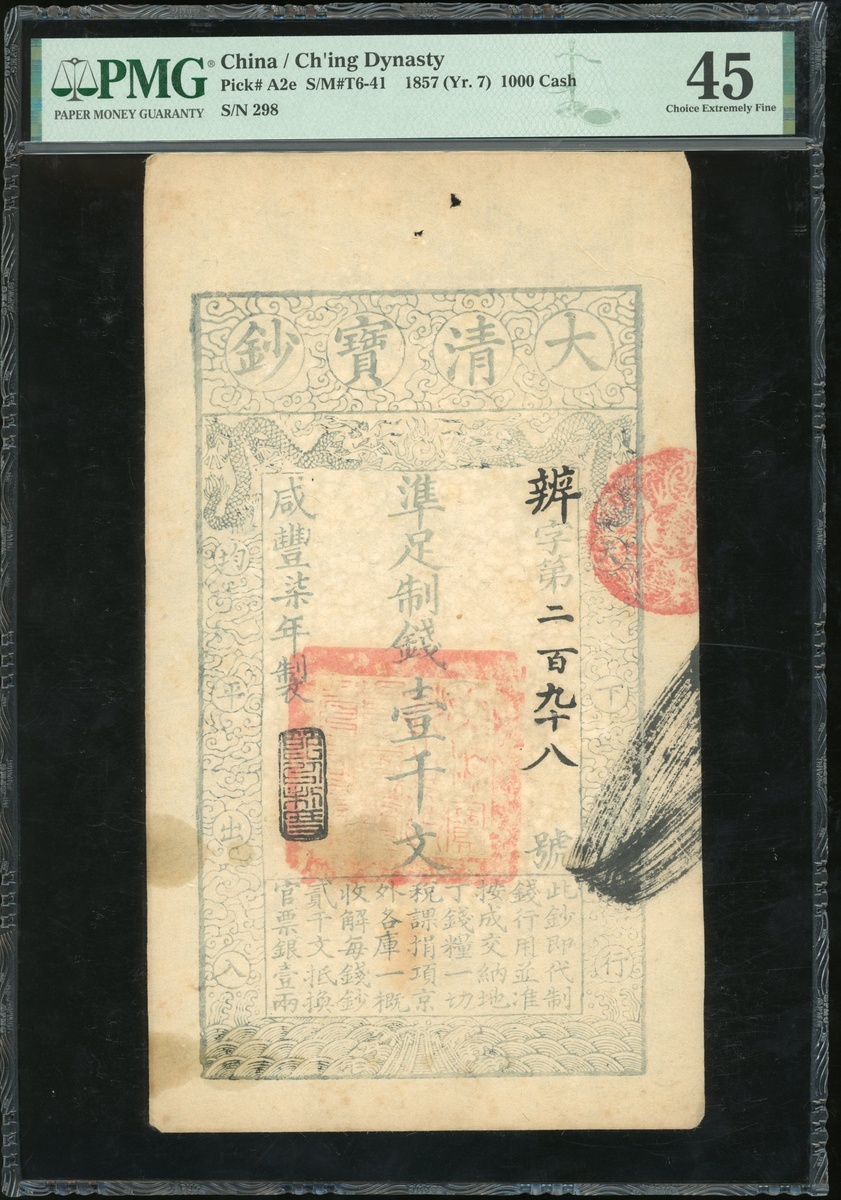 PMG® China / Ch'ing Dynasty
PAPER MONEY GUARANTY
Pick# A2e S/M#T6-41 1857 (Yr. 7) 1000 Cash
S/N 298
45
Choice Extremely Fine
大清寶鈔
下
行
辨字第二百九十八號
準足制錢壹千文
咸豐柒年製
均平出入
此鈔即代制
錢行用並准
按成交納地
丁錢糧一切
稅課捐項京
外各庫一概
收解每錢鈔
貳千文抵換
官票銀壹兩